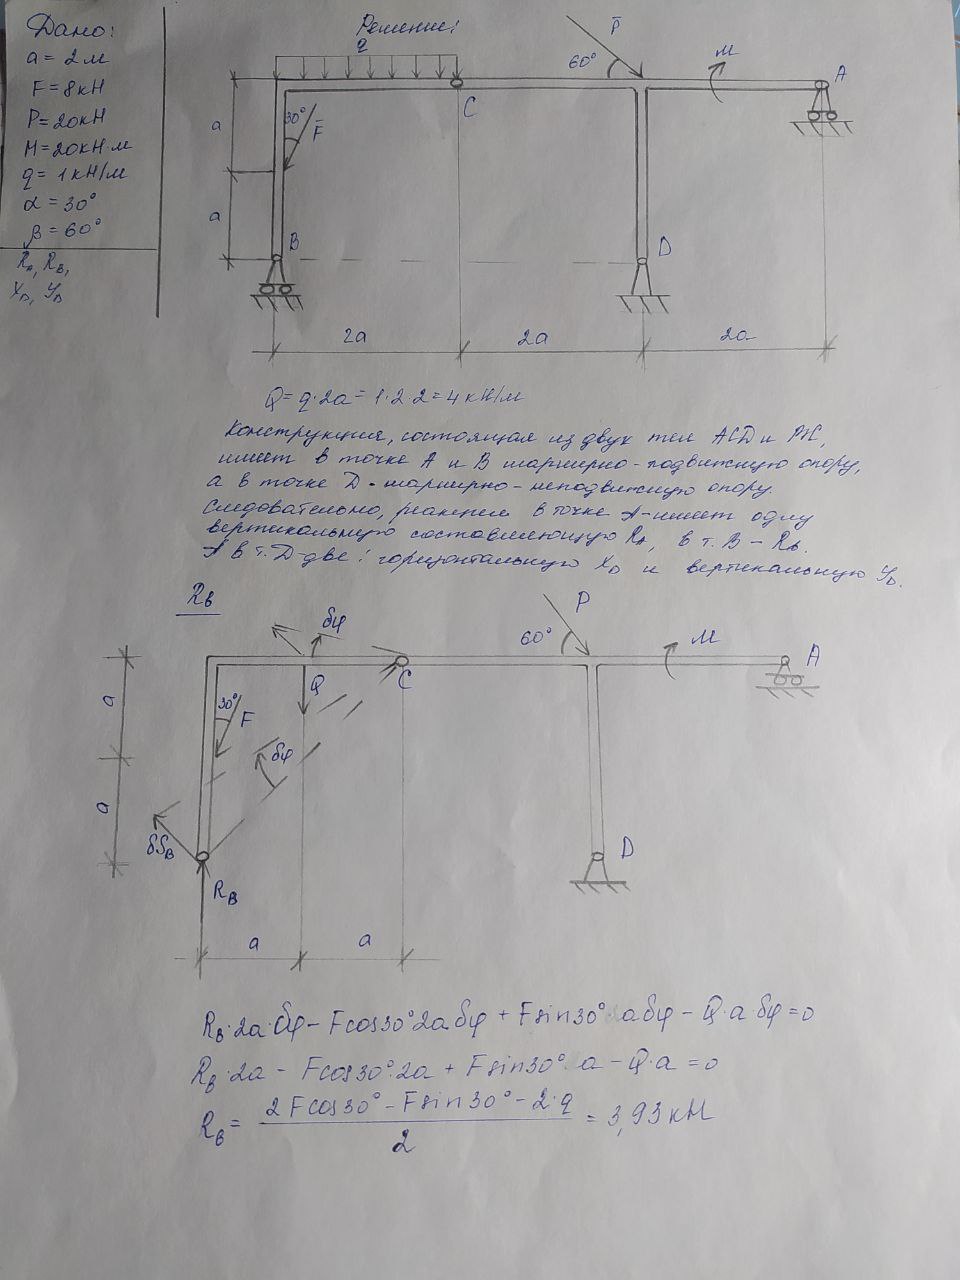 Дано:
a = 2 м
F = 8 кН
P = 20 кН
M = 20 кН·м
q = 1 кН/м
α = 30°
β = 60°
R_A, R_B,
X_D, Y_D
Решение:
q
P̄
60°
M
A
C
a
30°
F̄
a
B
D
2a
2a
2a
Q = q·2a = 1·2·2 = 4 кН/м
Конструкция, состоящая из двух тел ACD и BC,
имеет в точке A и B шарнирно-подвижную опору,
а в точке D - шарнирно-неподвижную опору.
Следовательно, реакция в точке A-имеет одну
вертикальную составляющую R_A, в т. B – R_B.
А в т. D-две: горизонтальную X_D и вертикальную Y_D.
R_B
δφ
P
60°
M
A
C
Q
a
30°
F
δφ
a
δS_B
R_B
D
a
a
R_B·2a·δφ – Fcos30°2aδφ + Fsin30°·aδφ – Q·a·δφ = 0
R_B·2a – Fcos30°·2a + Fsin30°·a – Q·a = 0
R_B = (2Fcos30° – Fsin30° – 2·q) / 2 = 3,93 кН